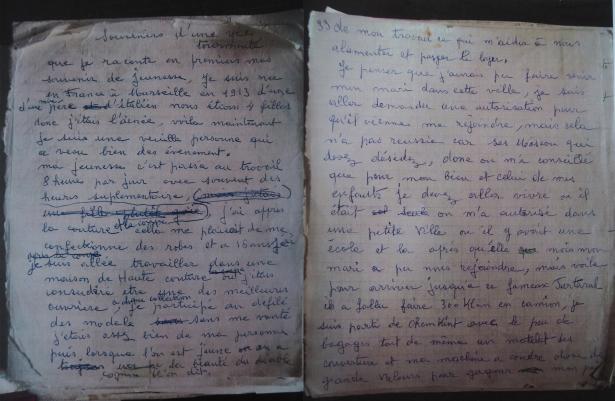 Souvenirs d'une vie
tourmenté
que je raconte en premier mes
souvenir de jeunesse, je suis née
en France à Marseille en 1913 d'une
d'une père d'Italien nous étions 4 filles
dont j'étais l'ainée, voila maintenant
je suis une vieille personne qui
a vécu bien des évenement.
ma jeunesse c'est passé au travail
8 heures par jour avec souvent des
heures suplementaire,
j'ai appris
la couture cella me plaisait de me
confectionne des robes et a 16 ans je
je suis allée travailler dans une
maison de Haute couture ou j'étais
considérée etre une des meilleures
ouvrière, je participé au défilé
des modele sans me vanté
j'étais assez bien de ma personne
puis lorsque l'on est jeune on a
la beauté du diable
comme l'on dit.
33 de mon travail ce qui m'aida à nous
alimenter et payer le loyer.
Je pensez que j'amais pu faire venir
mon mari dans cette ville, je suis
aller demander une autorisation pour
qu'il vienne me rejoindre, mais cela
n'a pas reussie car ses Moscou qui
devez désidez, donc on m'a conseillé
que pour mon bien et celui de mes
enfants je devez aller vivre ou il
était on m'a autorisé dans
une petite ville ou il y avait une
école et la après qu'elle mois mon
mari a pu nous rejoindre, mais voila
pour arriver jusqu'a ce fameux
il a fallu faire 300 Klm en camion, je
suis partie de Chemkent avec le peu de
bagages tout de même un matelat des
couverture et ma machine a coudre chose de
grande valeurs pour gagner mon pain